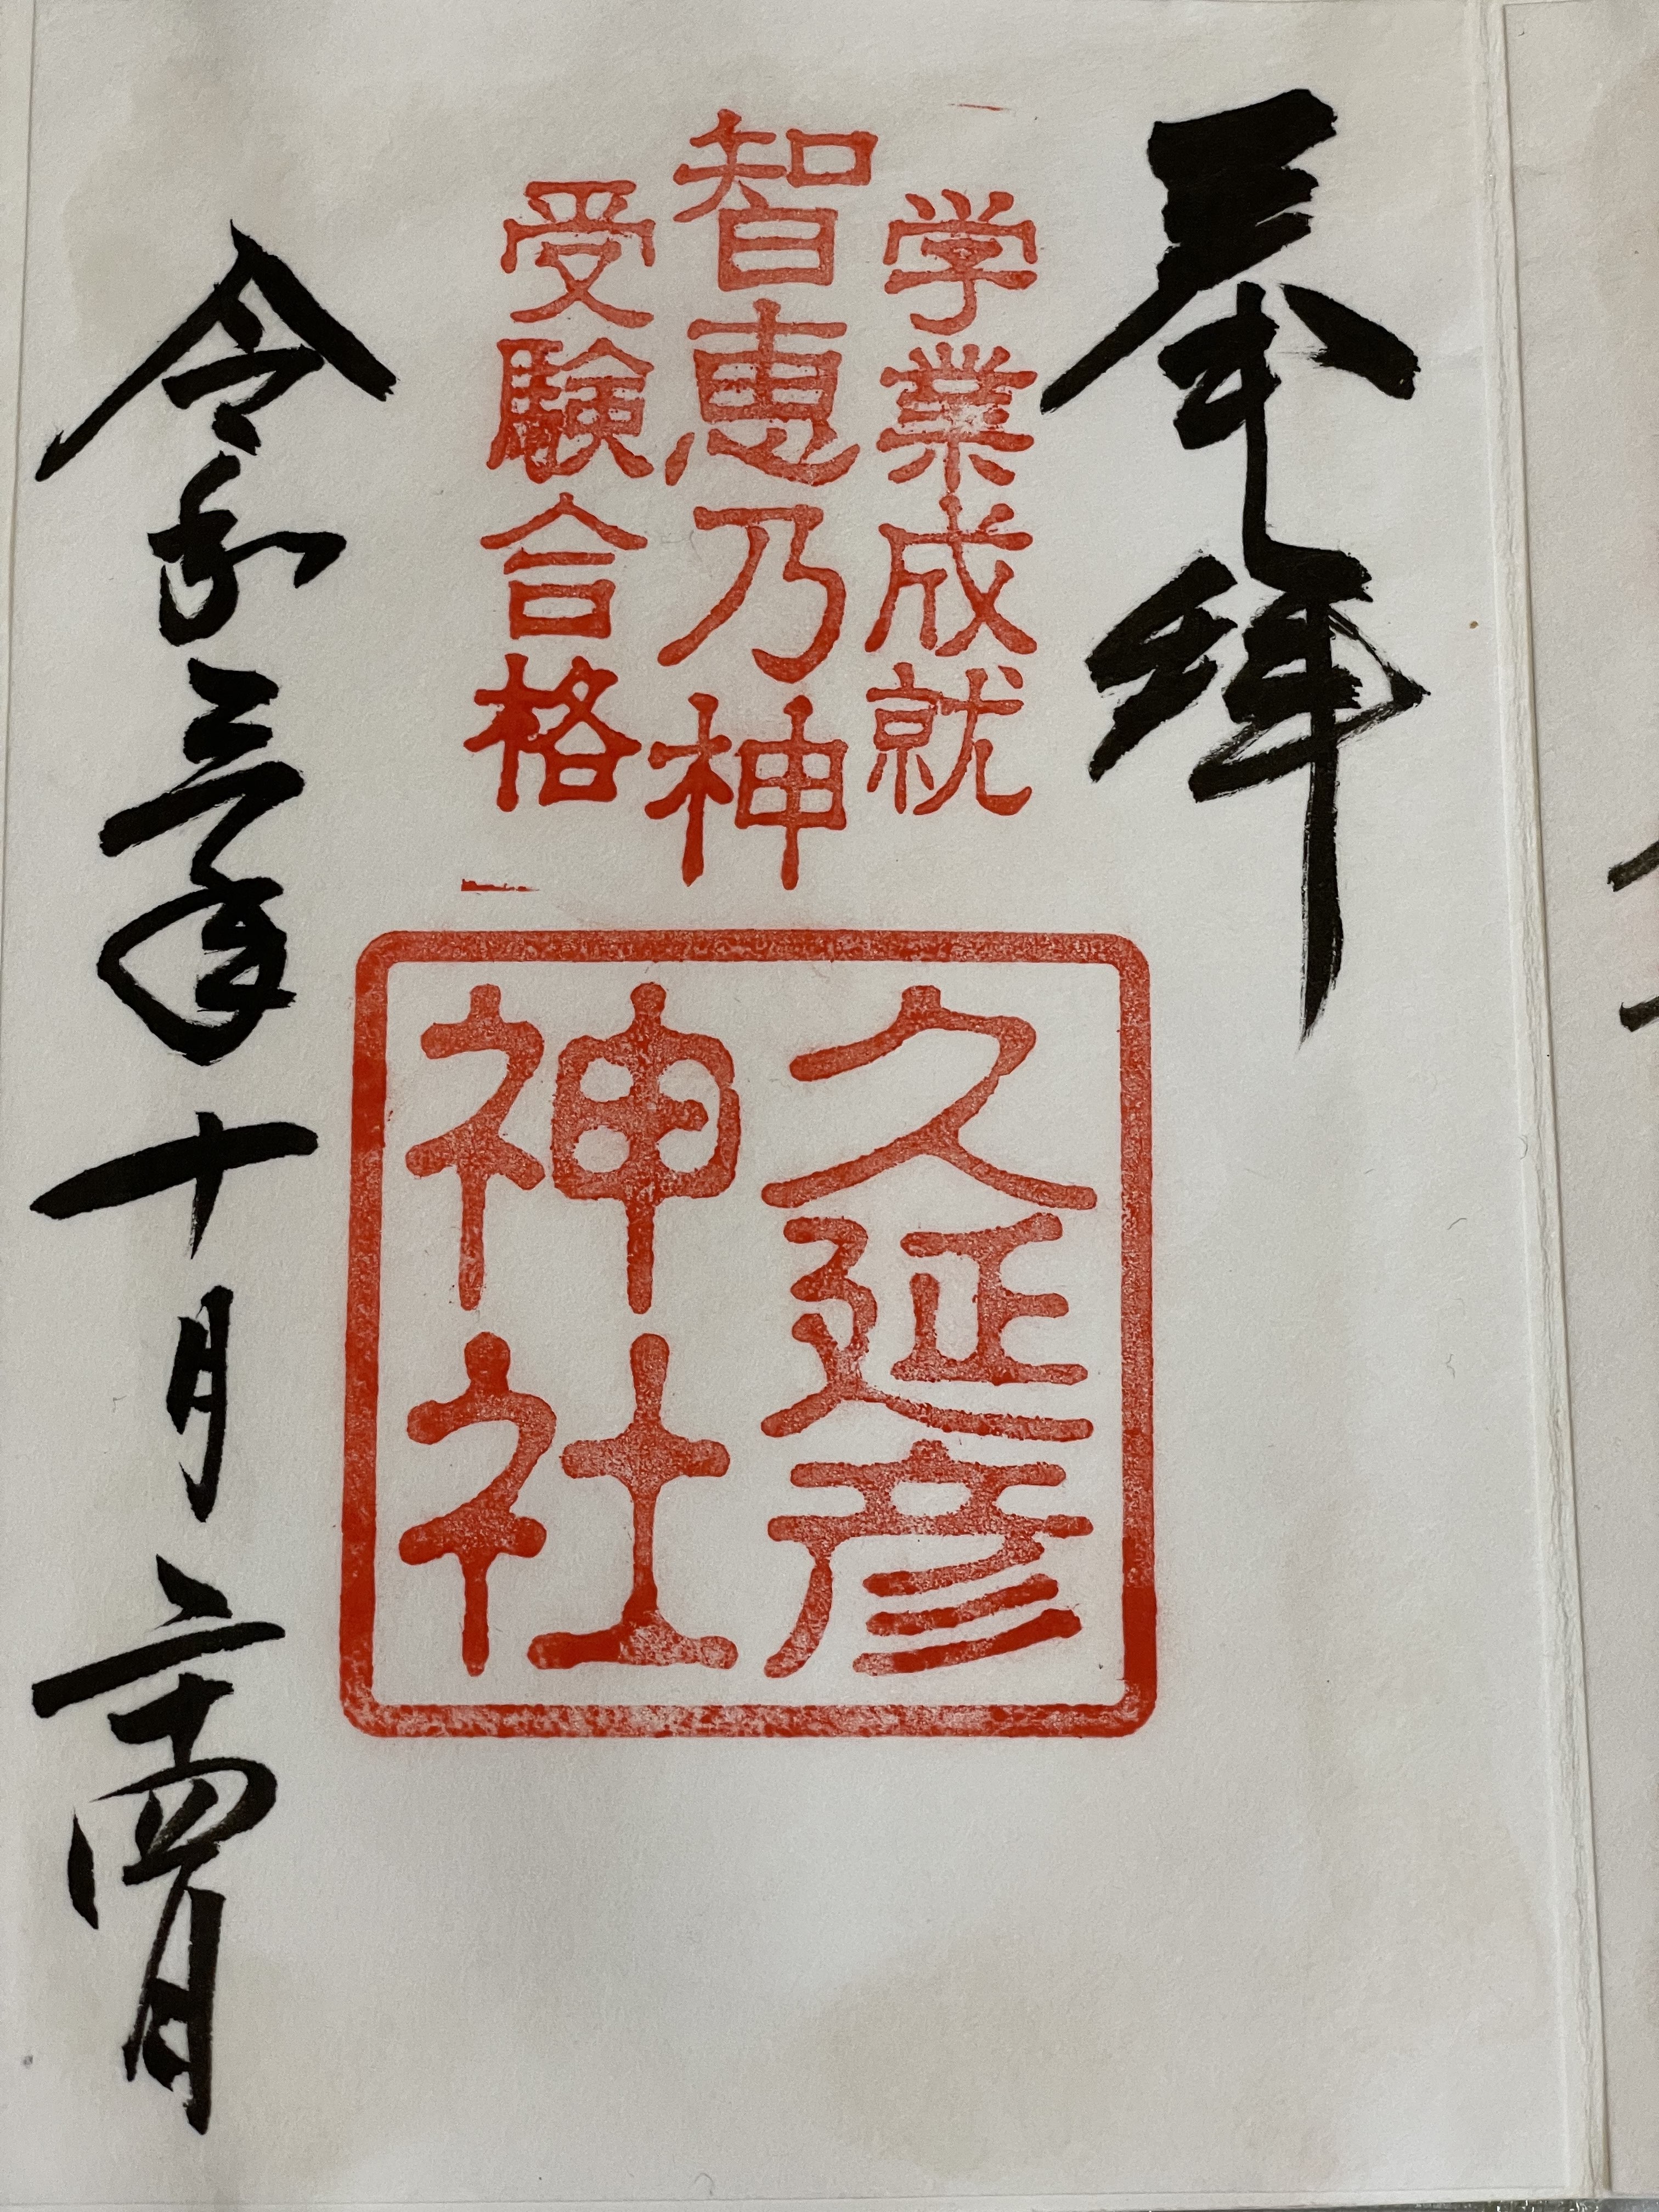 奉拝
学業成就
智恵乃神
受験合格
久延彦
神社
令和三年十月二十四日